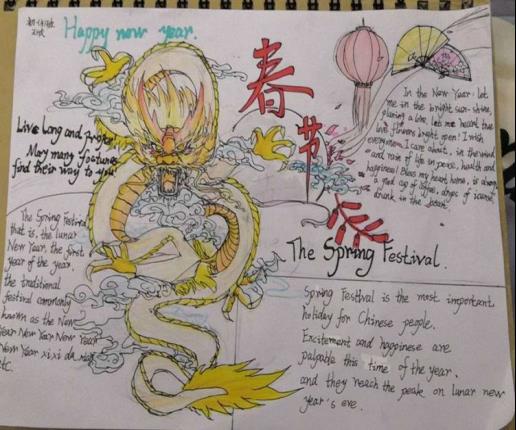 Happy now year.
春
节
Live Long and prosper
May many fortunes
find their way to you!
In the New Year. let
me in the bright sun-shine
love flowers bright open! I wish
everyone I care about. in the wind
and rain of life in peace, health and
happiness! Bless my heart home, is always
a cup of drops of
drunk in the boat
The Spring Festival.
The Spring Festival
that is, the lunar
New Year, the first
year of the year.
the traditional
festival commonly
known as the New
Year New Year New Year
New Year xixi da
etc.
Spring Festival is the most important
holiday for Chinese people.
Excitement and happiness are
palpable this time of the year.
and they reach the peak on lunar new
year's eve.